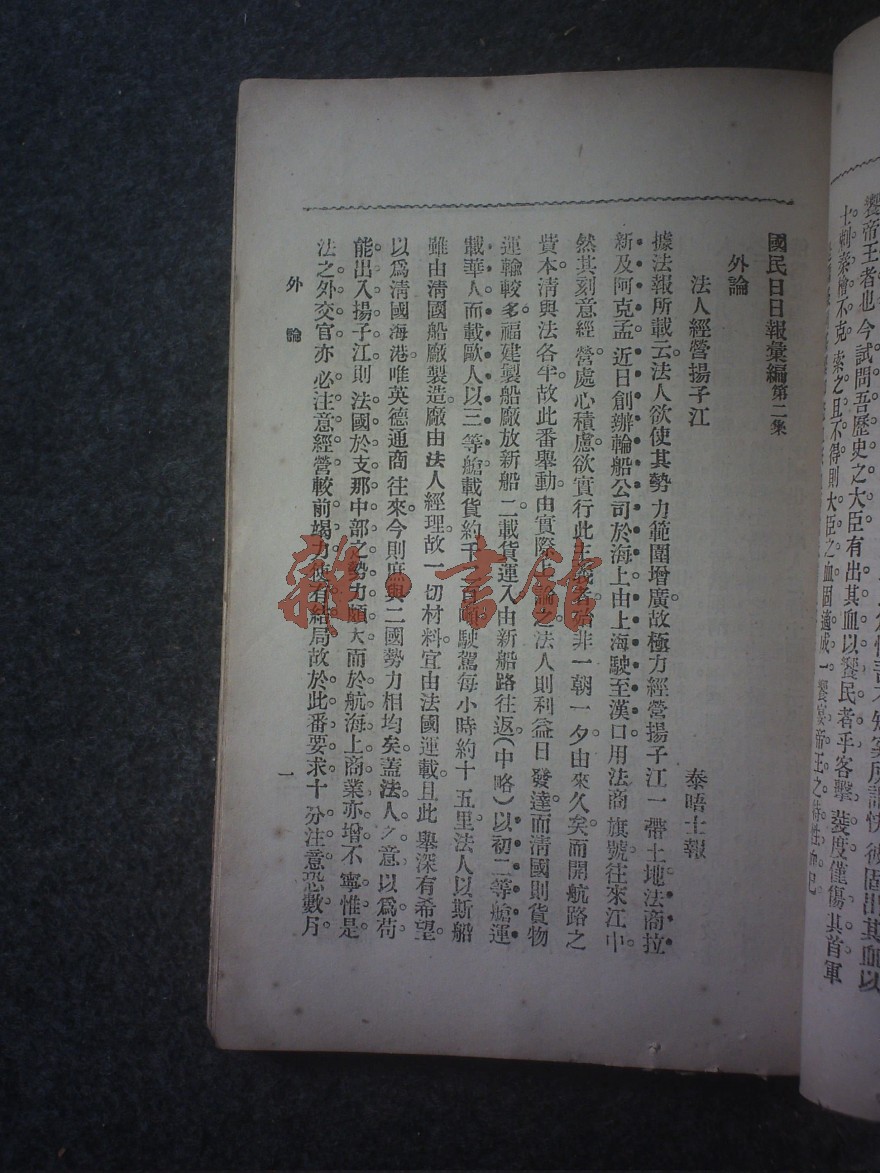 饗帝王者也今試問吾歷史之大臣有出其血以饗民者乎客擊裴度僅傷其首軍
士刺秦檜不克索之且不得則大臣之血固適成一饗宴帝王之特性而已
國民日日報彙編第二集
外論
法人經營揚子江 泰晤士報
據法報所載云法人欲使其勢力範圍增廣故極方經營揚子江一帶土地法商拉
新及阿克孟近日創辦輪船公司於海上由上海駛至漢口用法商旗號往來江中
然其刻意經營處心積慮欲實行此主義者殆非一朝一夕由來久矣而開航路之
貲本清與法各半故此番舉動由實際上論之法人則利益日發達而清國則貨物
運輸較多福建製船廠放新船二載貨運入由新船路往返(中略)以初二等艙運
載華人而載歐人以三等艙載貨約千百噸駛駕每小時約十五里法人以斯船
雖由清國船廠製造廠由法人經理故一切材料宜由法國運載且此舉深有希望
以爲清國海港唯英德通商往來今則庶與二國勢力相均矣蓋法人之意以爲苟
能出入揚子江則法國於支那中部之勢力頗大而於航海上商業亦增不寧惟是
法之外交官亦必注意經營較前竭力使有結局故於此番要求十分注意恐數月
外論
一
雜·書館